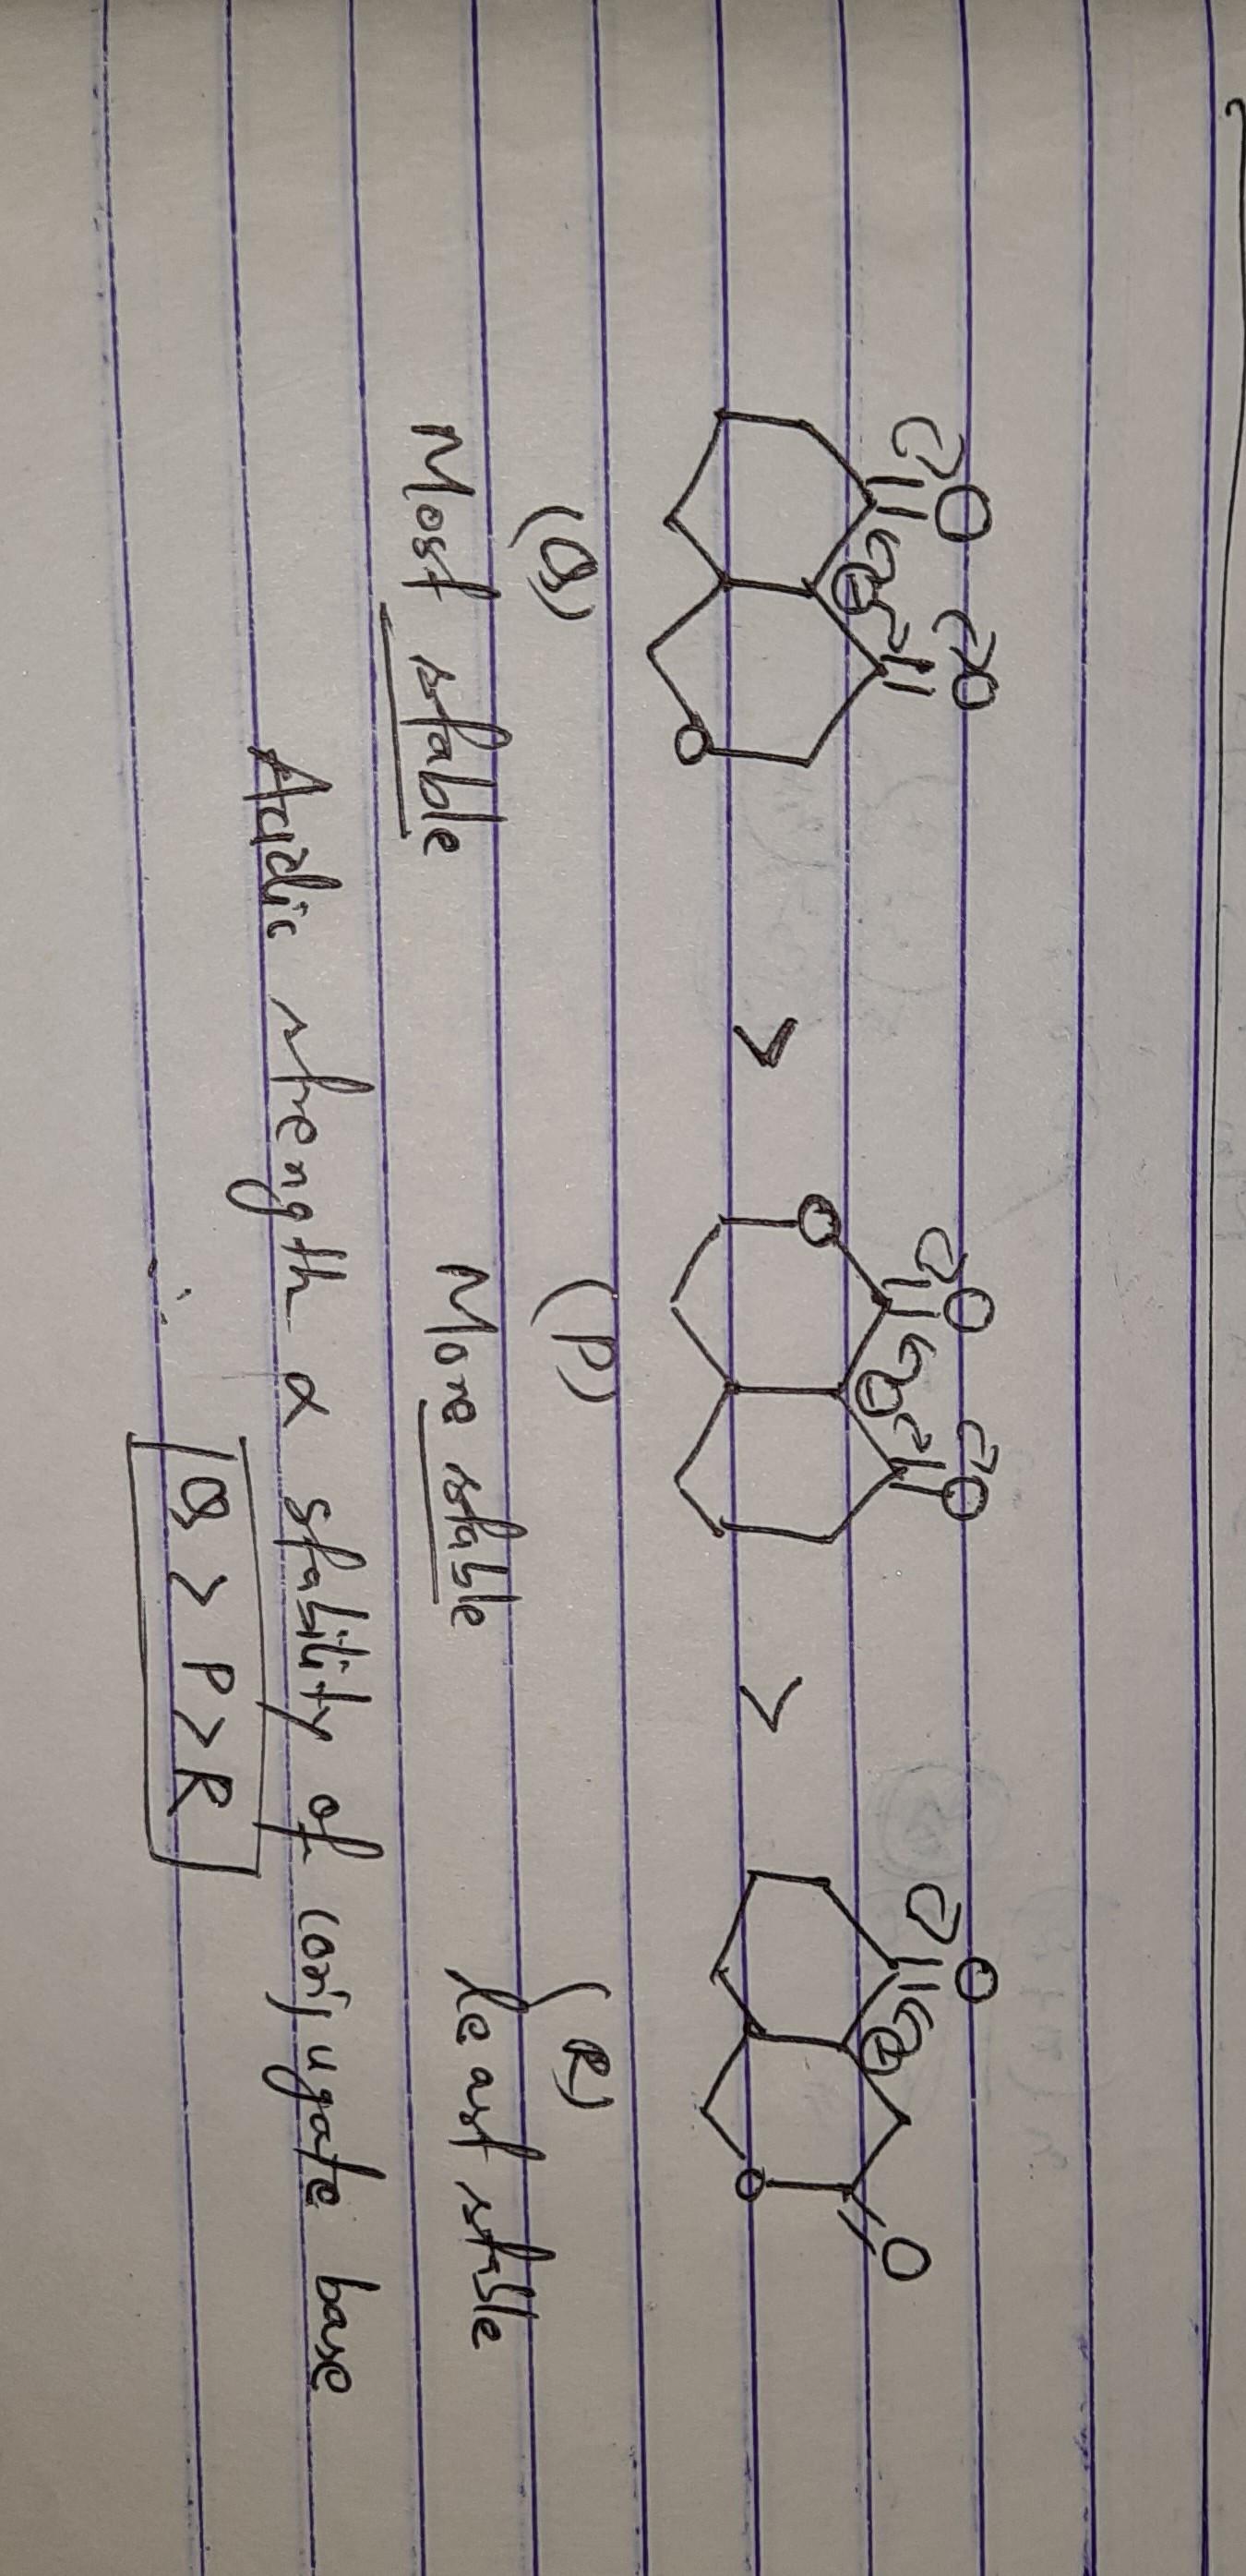 O O > O O > O
O O O O
(Q) (P) (R)
Most stable More stable least stable
Acidic strength α stability of conjugate base
Q > P > R